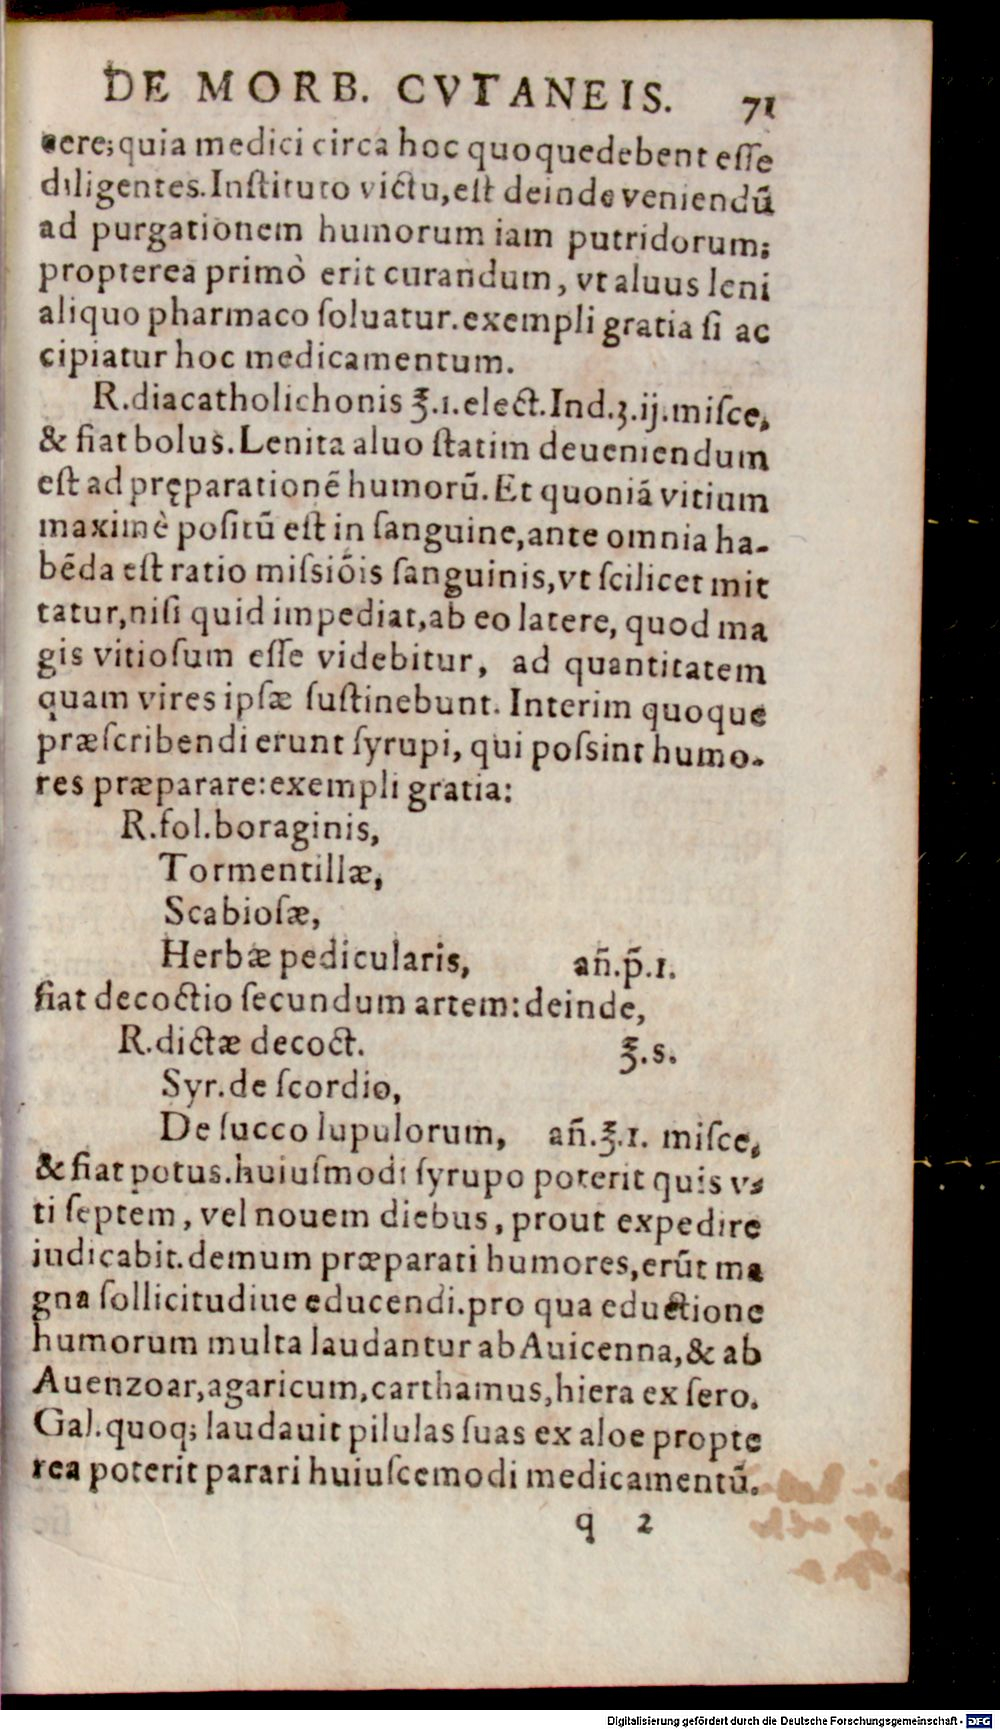 DE MORB. CVTANEIS. 71
cere; quia medici circa hoc quoquedebent eſſe
diligentes. Inſtituto victu, eſt deinde veniendū
ad purgationem humorum iam putridorum;
propterea primò erit curandum, vt aluus leni
aliquo pharmaco ſoluatur. exempli gratia ſi ac
cipiatur hoc medicamentum.
R. diacatholichonis ℥.1. elect. Ind. ʒ.ij. miſce,
& fiat bolus. Lenita aluo ſtatim deueniendum
eſt ad pręparationē humorū. Et quoniā vitium
maximè poſitū eſt in ſanguine, ante omnia ha-
bēda eſt ratio miſsiōis ſanguinis, vt ſcilicet mit
tatur, niſi quid impediat, ab eo latere, quod ma
gis vitioſum eſſe videbitur, ad quantitatem
quam vires ipſæ ſuſtinebunt. Interim quoque
præſcribendi erunt ſyrupi, qui poſsint humo-
res præparare: exempli gratia:
R. fol. boraginis,
Tormentillæ,
Scabioſæ,
Herbæ pedicularis, añ. p̃. 1.
fiat decoctio ſecundum artem: deinde,
R. dictæ decoct. ℥.s.
Syr. de ſcordio,
De ſucco lupulorum, añ. ℥.1. miſce,
& fiat potus. huiuſmodi ſyrupo poterit quis v-
ti ſeptem, vel nouem diebus, prout expedire
iudicabit. demum præparati humores, erūt ma
gna ſollicitudiue educendi. pro qua eductione
humorum multa laudantur ab Auicenna, & ab
Auenzoar, agaricum, carthamus, hiera ex ſero.
Gal. quoq; laudauit pilulas ſuas ex aloe propte
rea poterit parari huiuſcemodi medicamentū.
q 2
Digitalisierung gefördert durch die Deutsche Forschungsgemeinschaft - DFG